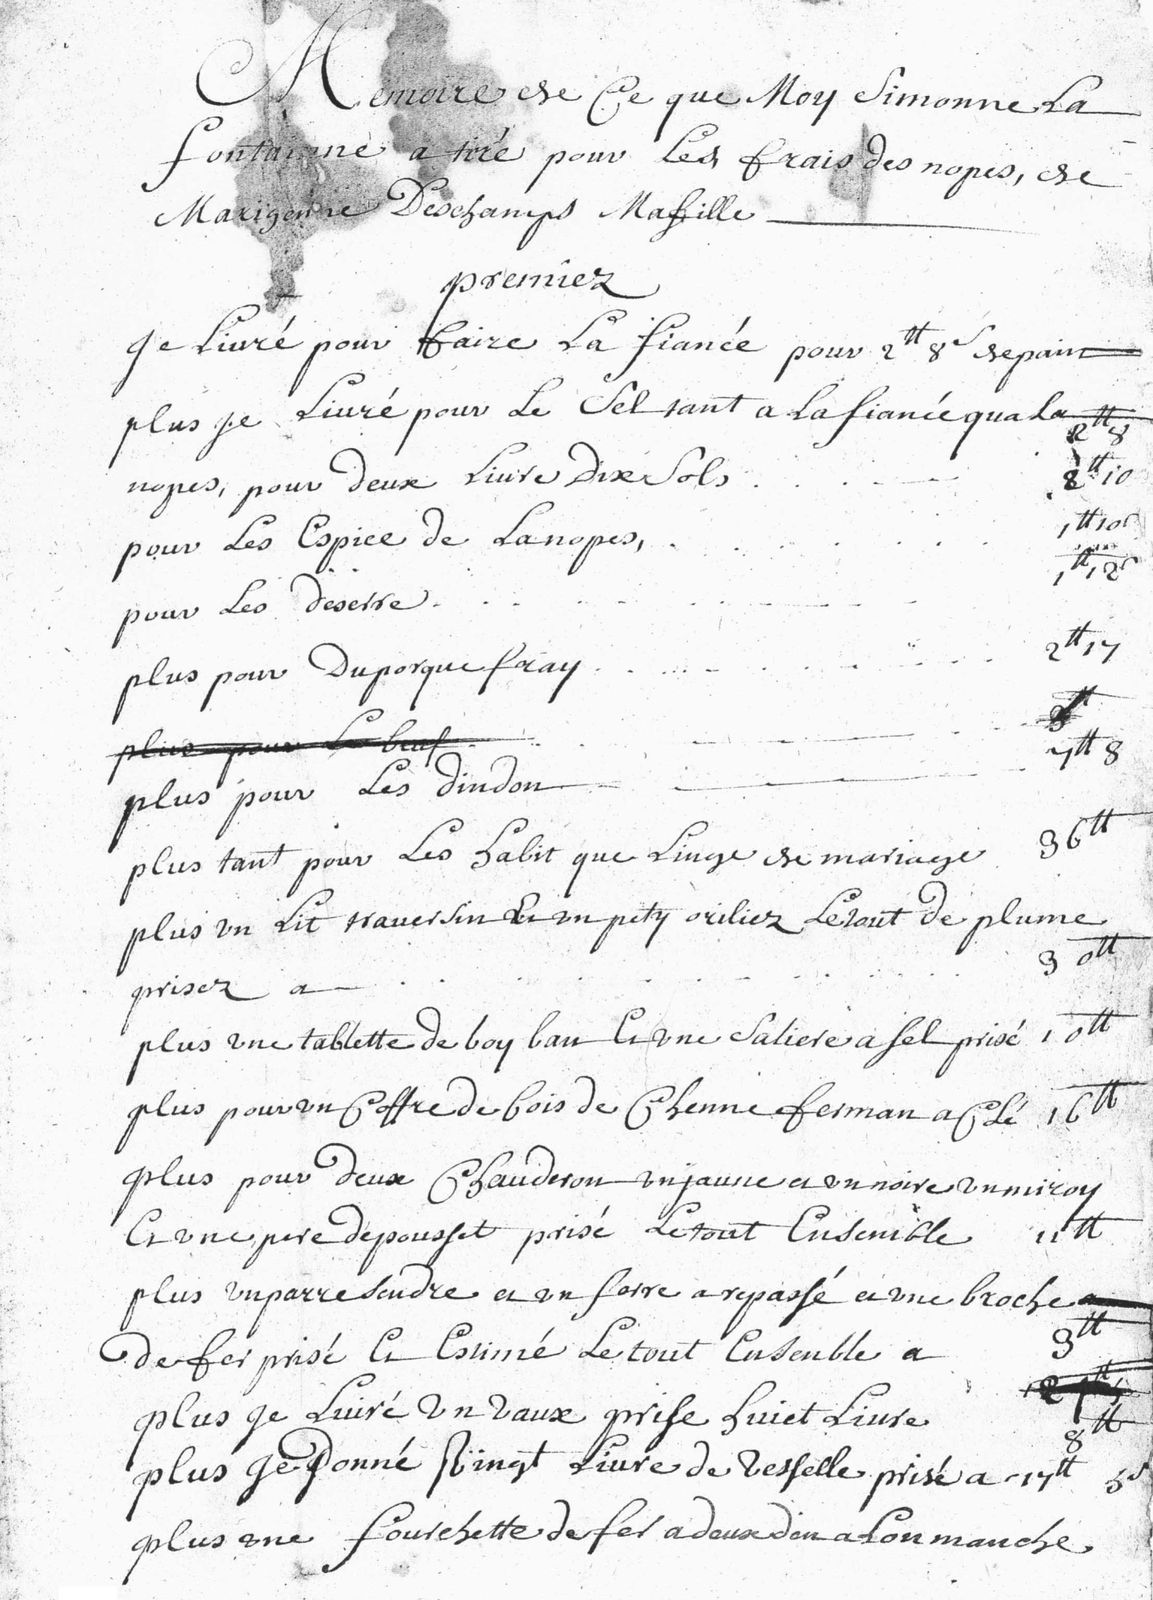 Memoire de Ce que Moy Simonne La
fontainne a tiré pour Les frais des nopes, de
Marigenne Deschamps Mafille
premiez
Je Livré pour faire La fiancée pour 2tt 8s de pain
plus je Livré pour Le Sel tant a La fiancée qua La 2tt 8
nopes, pour deux Livre Dix Sols 2tt 10
pour Les Espice de La nopes, 1tt 10s
pour Les deserre 1tt 12s
plus pour Du porque fray 2tt 17
plus pour Le beuf
plus pour Les dindon 7tt 8
plus tant pour Les habit que Linge de mariage 36tt
plus un Lit traversin Et un pety oriliez Le tout de plume
prisez a 30tt
plus une tablette de boy ban Et une Saliere a sel prisé 10tt
plus pour un Coffre de bois de Chenne ferman a Clé 16tt
plus pour deux Chauderon un jaune et un noire un miroy
Et une pere depousset prisé Le tout Ensemble 11tt
plus un parre sendre et un ferre a repassé et une broche
de fer prisé Et Estimé Le tout Ensenble a 3tt
plus Je Livré un vaux prise huiet Livre 8tt
plus Je Donné Vingt Livre de vesselle prisé a 17tt 5s
plus une fourchette de fer a deux den a Lon manche